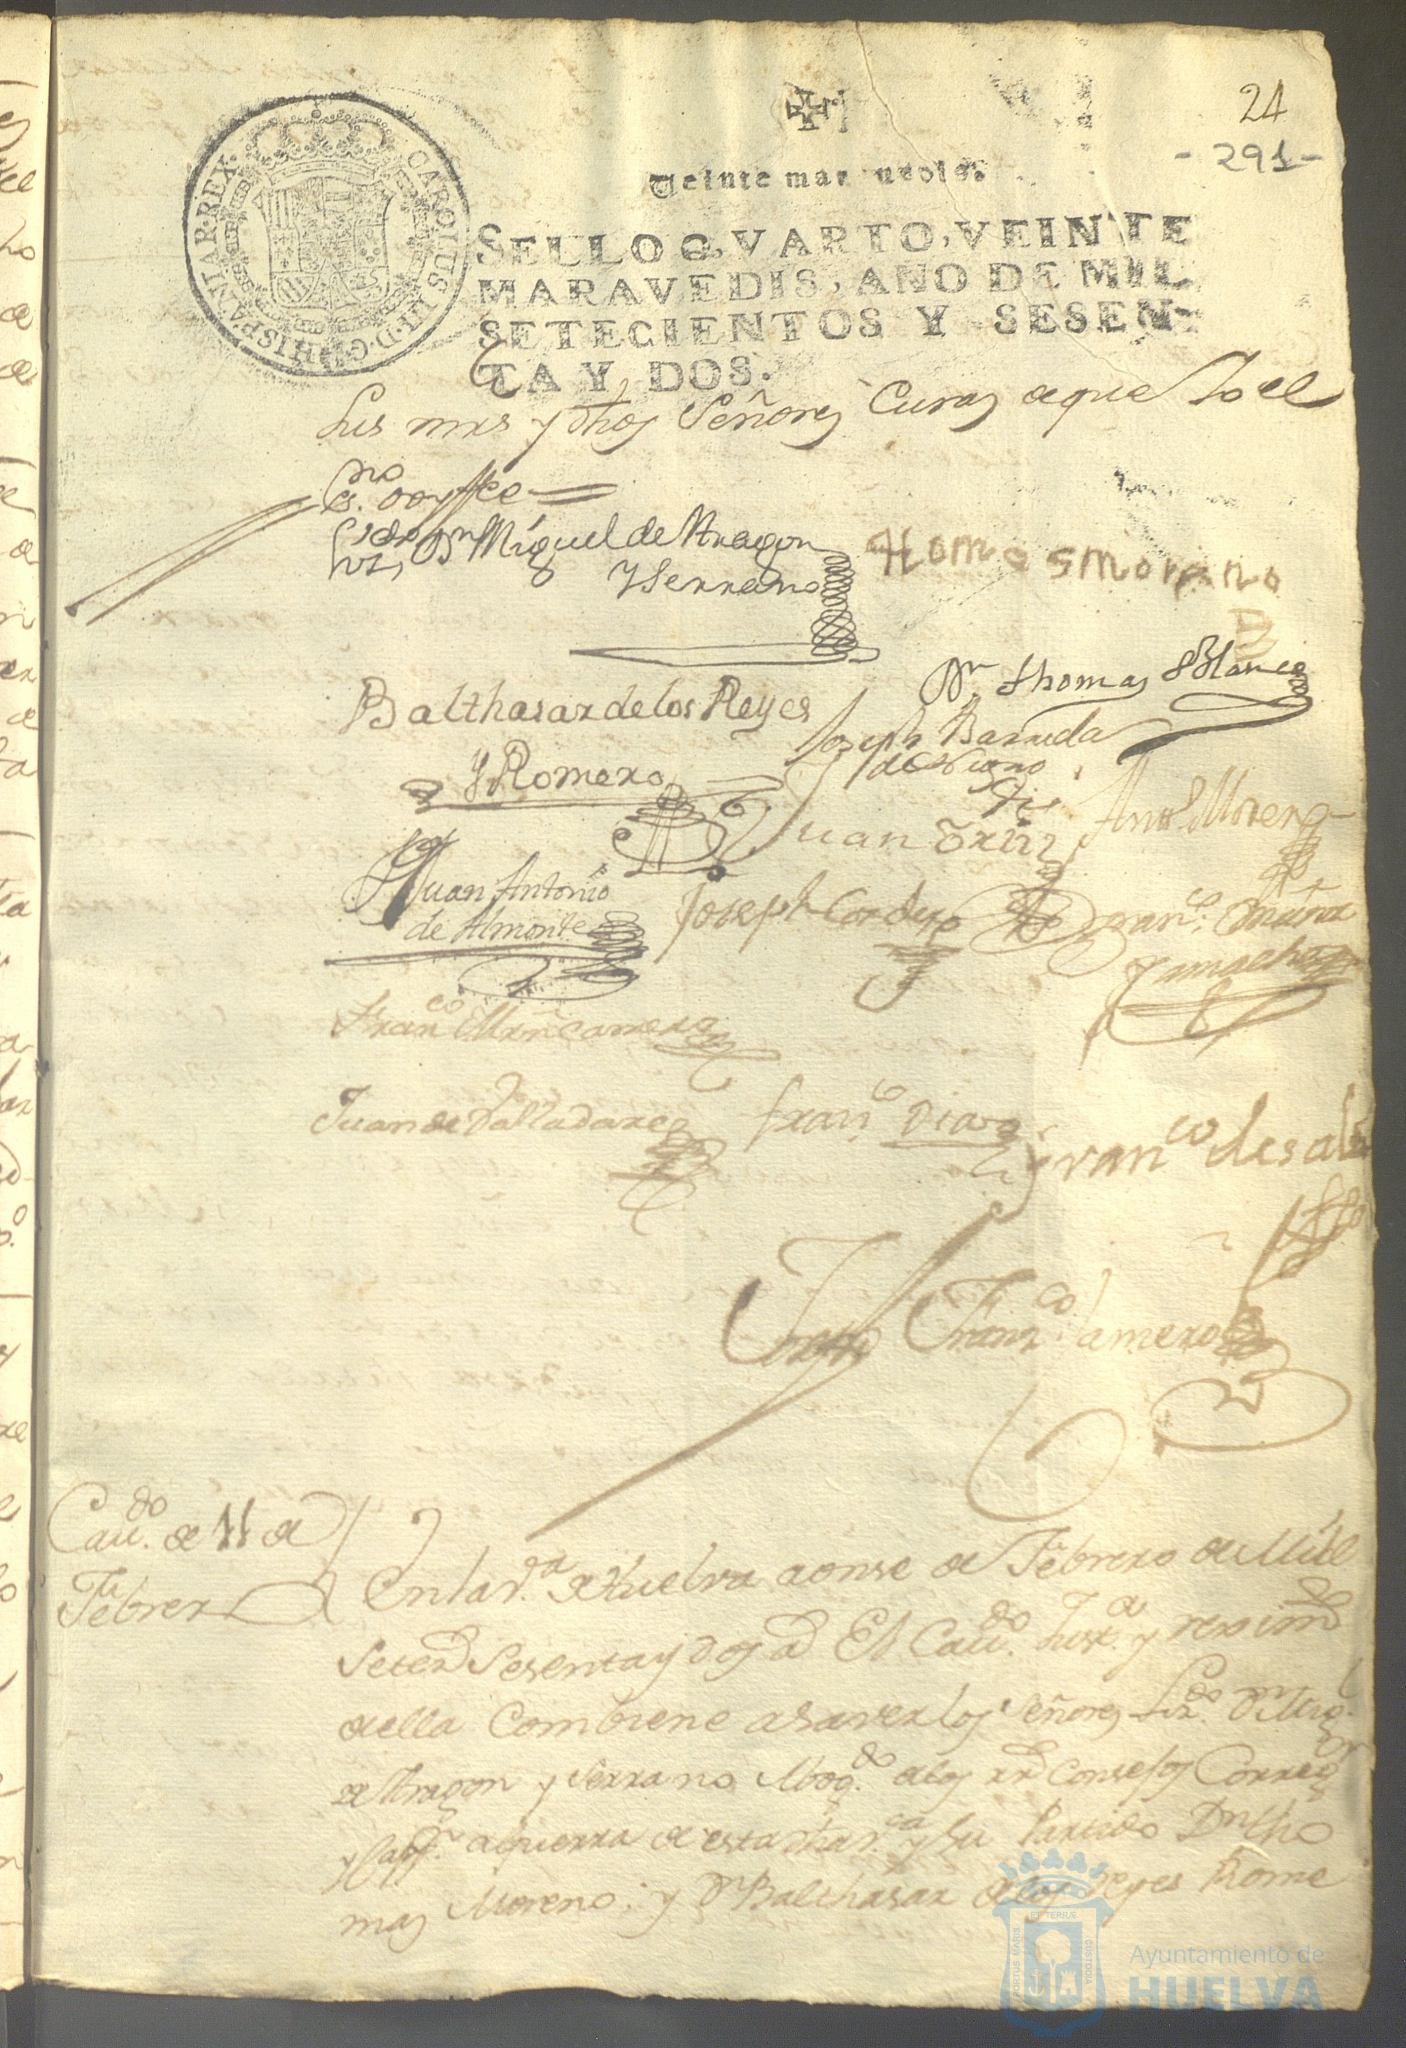 24
- 291 -
CAROLUS III. D. G. HISPANIAR. REX.
Veinte maravedis.
SELLO QVARTO, VEINTE
MARAVEDIS, AÑO DE MIL
SETECIENTOS Y SESEN-
TA Y DOS.
Sus mrs y dhos Señores Curas de que Yo el
Esno doy fee
Lizdo Dn Miguel de Aragon
Y Serrano
Thomas moreno
Dn Thomas Blanco
Balthasar de los Reyes
Y Romero
Joseph Barreda
Juan Ortiz
Antto Moreno
Juan Antonio
de Almonte
Joseph Cordero
Franco
Camacho
Franco Mrn Carrera
Juan de Valladares
Franco Diaz
Franco de
Joseph Franco Camero
Cavdo de 11 de
Febrero
En la va de Huelva a onse de Febrero de Mill
Setecs Sesenta y dos as El Cavdo Justa y reximto
de ella Combiene a saver los Señores Lizdo Dn Migl
de Aragon y Serrano Abogdo de los rrs Consejos Corregor
y Cappn a guerra de esta dha va y su Partido Dn Tho
mas Moreno; y Dn Balthasar de los Reyes Rome
PORTUS MARIS
ET TERRÆ
CUSTODIA
Ayuntamiento de
HUELVA